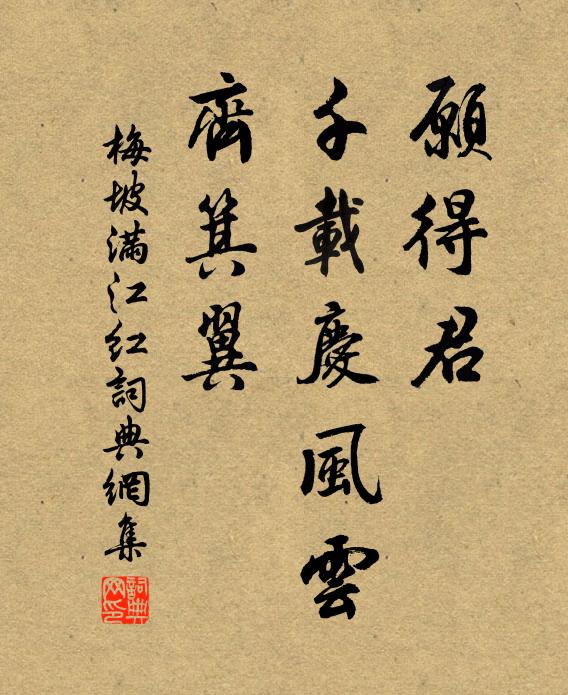 願得君
千載慶風雲
齊箕翼
梅坡滿江紅詞典網集
詞典
网印